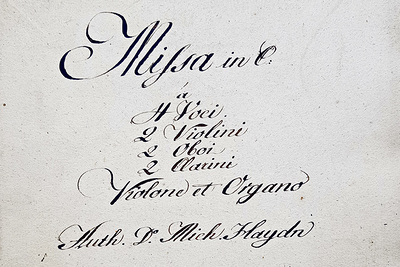 Missa in C:
á
4 Voci.
2 Violini
2 Oboi
2 Clarini
Violone et Organo
Auth. D. Mich. Haydn